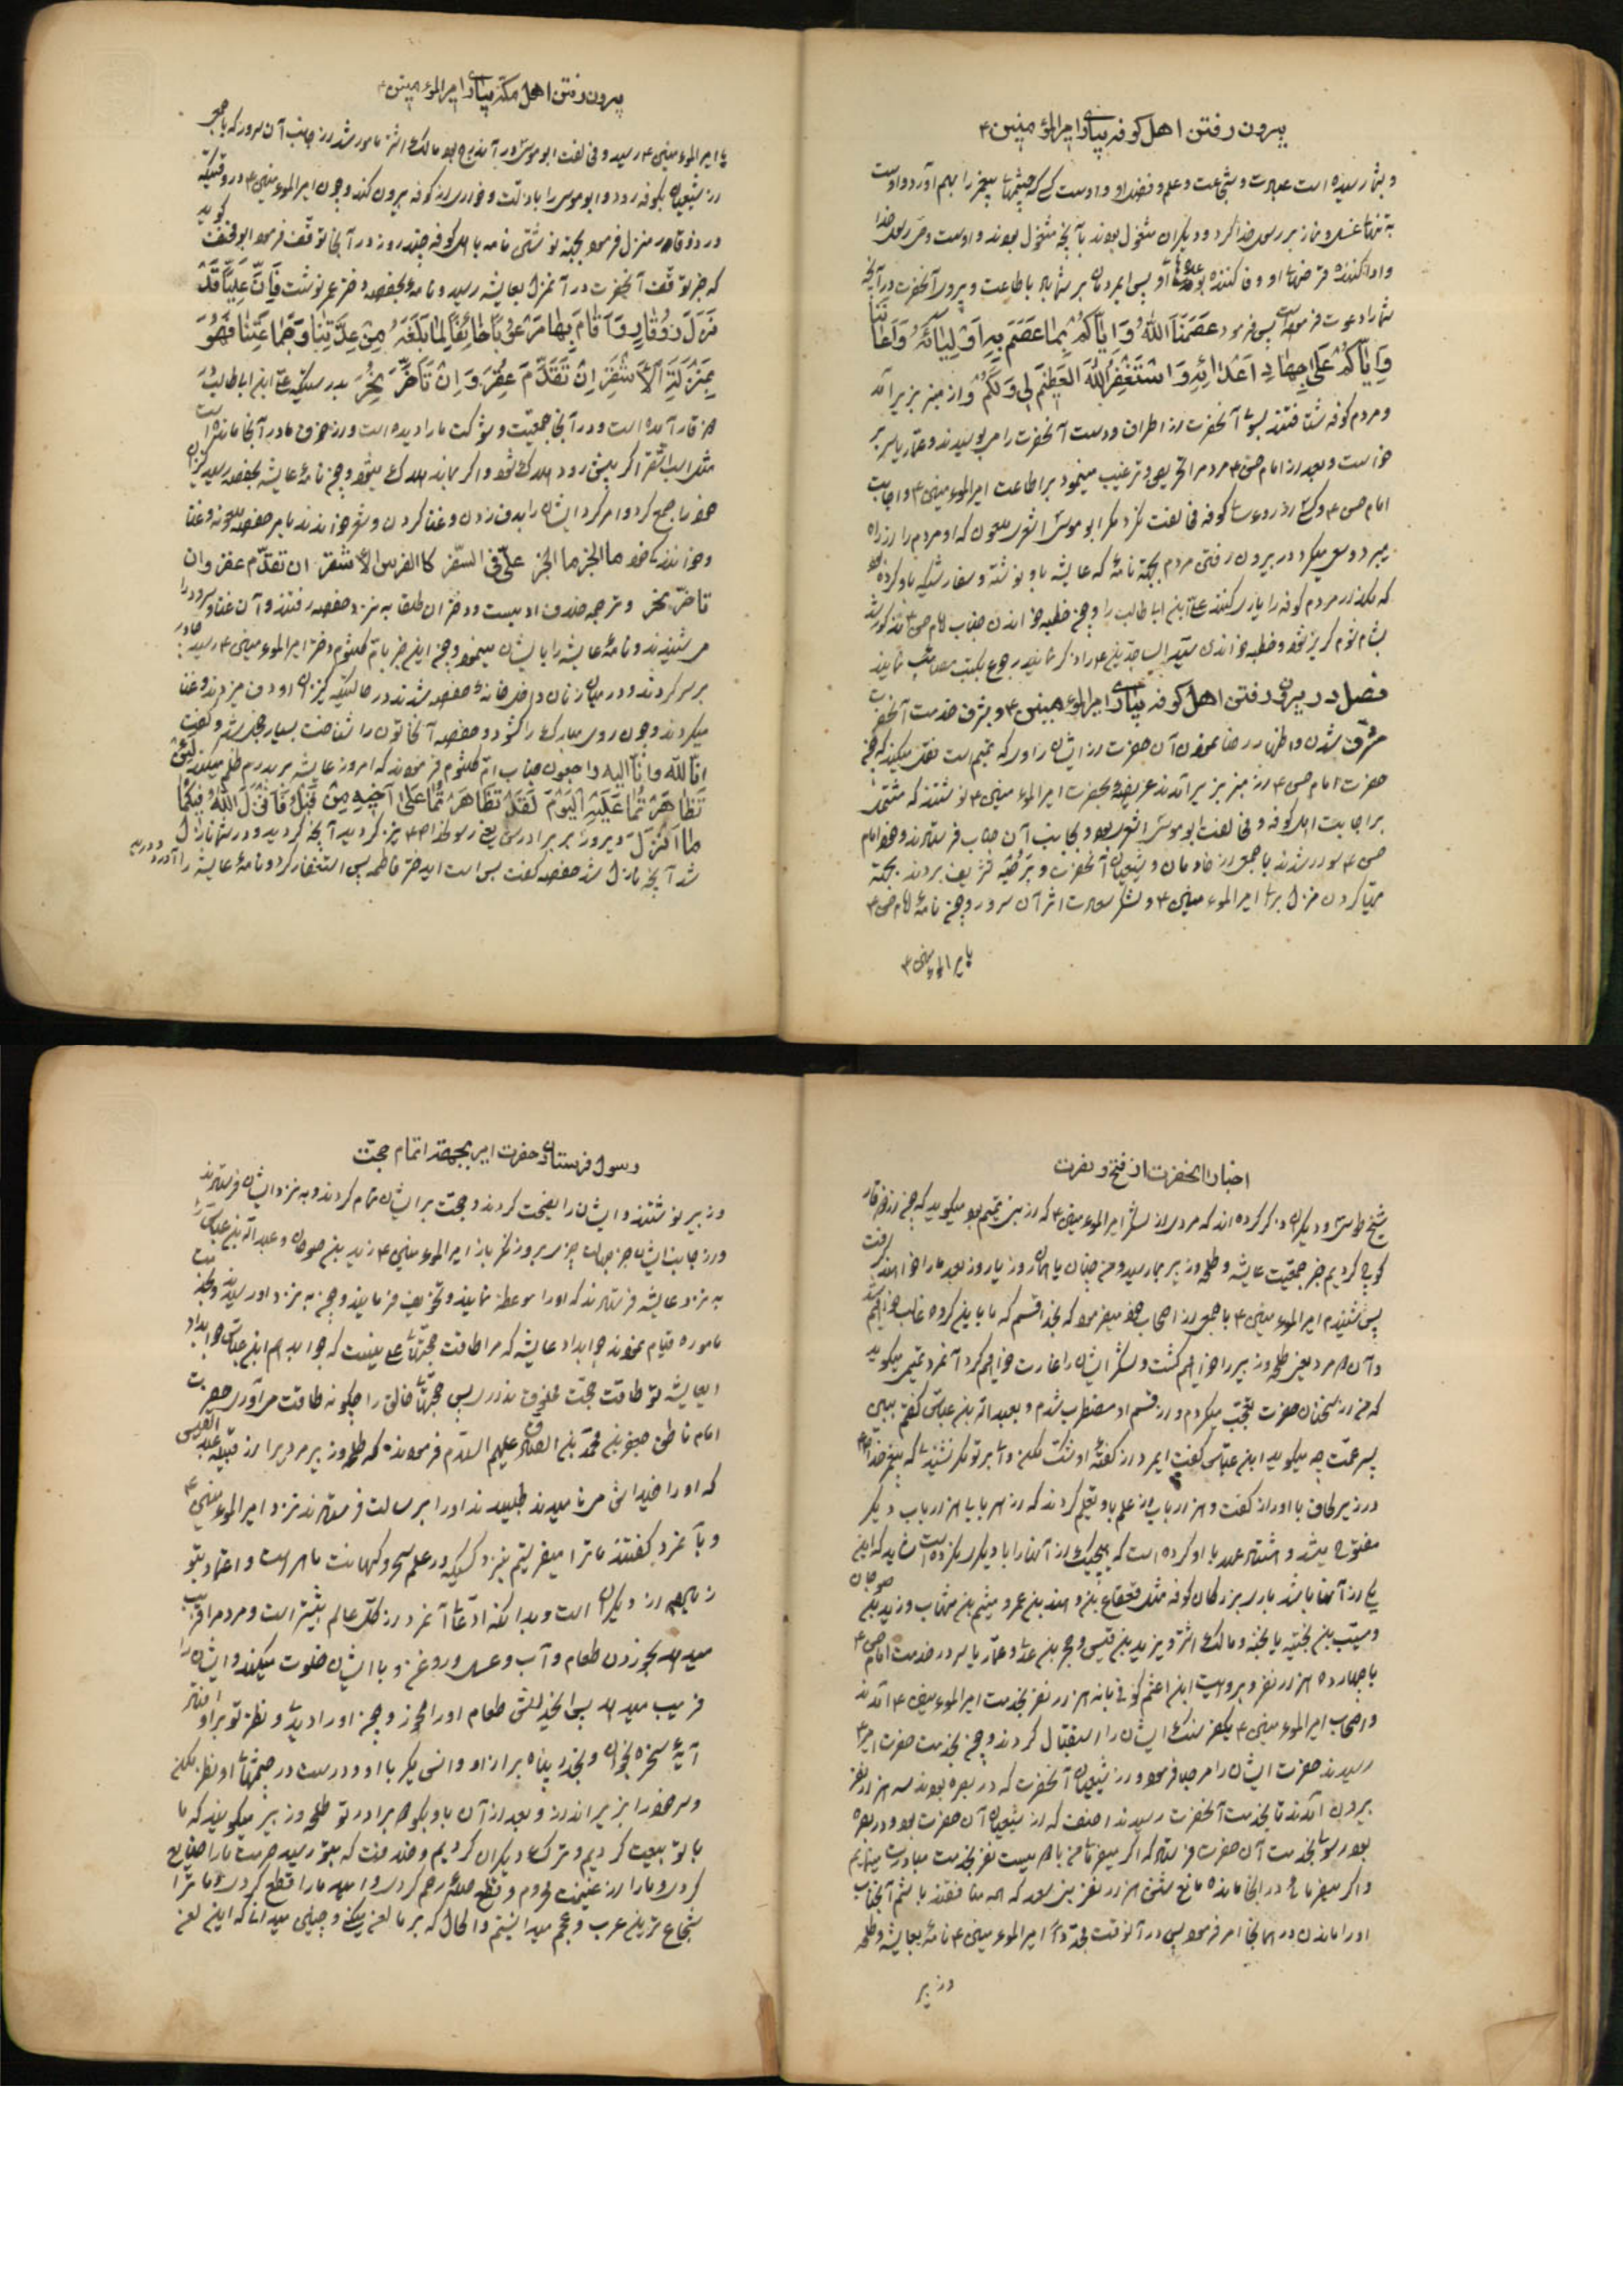 بیرون رفتن اهل کوفه بیاری امیرالمؤمنین ۴
و بشما رسیده است عبادت و شجاعت و علم و فضل او و اوست کسی که چشمهای پیغمبر را بهم آورد و اوست
به تنهائی غسل و نماز بر رسول خدا کرد و دیگران مشغول بودند بآنچه مشغول بودند و اوست وصی رسول خدا
و ادا کننده قرضهای او و وفا کننده بوعدهای او پس ایمردمان بر شما باد باطاعت و پیروی آنحضرت در آنچه
شما را دعوت فرموده است پس فرمود عَصَمَنَا اللهُ وَ اِیّاکُمْ بِما عَصَمَ بِهِ اَوْلِیائَهُ وَ اَعانَنا
وَ اِیّاکُمْ عَلی جِهادِ اَعْدائِهِ وَ اسْتَغْفِرُ اللهَ الْعَظیمَ لی وَ لَکُمْ و از منبر بزیر آمد
و مردم کوفه شتافتند بسوی آنحضرت از اطراف و دست آنحضرت را میبوسیدند و عمار یاسر بر
خواست و بعد از امام حسن ۴ مردم را تحریص و ترغیب مینمود بر اطاعت امیرالمؤمنین ۴ و اجابت
امام حسن ۴ و کسی از رؤسای کوفه مخالفت نکرد مگر ابو موسی اشعری ملعون که او مردم را از راه
میبرد و سعی میکرد در بیرون رفتن مردم بجهة نامهٔ که عایشه باو نوشته و سفارشیکه باو کرده بود
که نگذارد مردم کوفه را یاری کنند علی ابن ابیطالب را و چون خطبه خواندن جناب امام حسن ۴ مذکور شد
فصل در بیرون رفتن اهل کوفه بیاری امیرالمؤمنین ۴ و بشرف خدمت آنحضرت
مشرف شدن و اظهار رضا نمودن آن حضرت از ایشان راوی که تمیم است نقل میکند که چون
حضرت امام حسن ۴ از منبر بزیر آمدند عریضهٔ بحضرت امیرالمؤمنین ۴ نوشتند که مشتمل
بر اجابت اهل کوفه و مخالفت ابو موسی اشعری بود و بجانب آن جناب فرستادند و خود امام
حسن ۴ سوار شدند با جمعی از خادمان و شیعیان آنحضرت و بر خیّه تشریف بردند بجهة
مهیا کردن منزل برای امیرالمؤمنین ۴ و لشکر سعادت اثر آن سرور و چون نامهٔ امام حسن ۴
بامیرالمؤمنین ۴
بیرون رفتن اهل مکه بیاری امیرالمؤمنین ۴
بامیرالمؤمنین ۴ رسید و مخالفت ابو موسی در آن درج بود مالک اشتر مامور شد از جانب آن سرور که با جمعی
از شیعیان بکوفه رود و ابو موسی را باذلت و خواری از کوفه بیرون کند و چون امیرالمؤمنین ۴ در وقتیکه
در ذوقار منزل فرمود بجهة نوشتن نامه باهل کوفه چند روز در آنجا توقف فرمود ابو مخنف گوید
که خبر توقف آنحضرت در آن منزل بعایشه رسید و نامهٔ بحفصه دختر عمر نوشت فَاِنَّ عَلِیّاً قَدْ
نَزَلَ ذُوقارٍ وَ اَقامَ بِها مَرْعُوباً خائِفاً لِما بَلَغَهُ مِنْ عِدَّتِنا وَ جَماعَتِنا فَهُوَ
بِمَنْزِلَةِ الْاَشْقَرِ اِنْ تَقَدَّمَ عُقِرَ وَ اِنْ تَاَخَّرَ نُحِرَ بدرستیکه علی ابن ابیطالب در
ذوقار آمده است و در آنجا جمعیت و شوکت ما را دیده است و از خوف ما در آنجا مانده است
مثل اسب اشقر اگر پیش رود هلاک شود و اگر بماند هلاک میشود و چون نامهٔ عایشه بحفصه رسید کنیزان
خود را جمع کرد و امر کرد ایشان را بدف زدن و غنا کردن و شعر خواندند بامر حفصه ملعونه و غنا
و خواندند ما الخبر ما الخبر علیّ فی السفر کالفرس الاشقر ان تقدّم عقر و ان
تاخّر نحر و ترجمه چندان اد نیست و دختران طلقا به نزد حفصه رفتند و آن غنا و سرود را
میشنیدند و نامهٔ عایشه را بایشان مینمود و چون این خبر بام کلثوم دختر امیرالمؤمنین ۴ رسید چادر
بر سر کردند و در میان زنان داخل خانهٔ حفصه شدند در حالتیکه کنیزان او دف میزدند و غنا
میکردند و چون روی مبارک را گشود و حفصه آنخاتون را شناخت بسیار خجل شد و گفت
انّا لله و انّا الیه راجعون جناب ام کلثوم فرمودند که امروز عایشه بر پدرم ظلم میکند لَئِنْ
تَظاهَرْتُما عَلَیْهِ الْیَوْمَ لَقَدْ تَظاهَرْتُما عَلی اَخیهِ مِنْ قَبْلُ فَاَنْزَلَ اللهُ فیکُما
ما اَنْزَلَ دیروز بر برادرش یعنی رسولخدا نیز کردید آنچه کردید و در شما نازل
شد آنچه نازل شد حفصه گفت بس است ایدختر فاطمه پس استغفار کرد و نامهٔ عایشه را آورد و درید
اخبار آنحضرت از فتح و نصرت
شیخ طوسی و دیگران ذکر کرده اند که مردی از لشکر امیرالمؤمنین ۴ که از بنی تمیم بود میگوید که چون از ذوقار
کوچ کردیم خبر جمعیت عایشه و طلحه و زبیر بما رسید و من چنان یافتم
پس شنیدم امیرالمؤمنین ۴ با جمعی از اصحاب خود میفرمود که بخدا قسم که ما باین گروه غالب خواهیم شد
و آن دو مرد یعنی طلحه و زبیر را خواهیم کشت و لشکر ایشان را غارت خواهیم کرد آنمرد تمیمی میگوید
که من از سخنان حضرت تعجب میکردم و از قسم او مضطرب شدم و بعبدالله بن عباس گفتم ببین
پسر عمت چه میگوید ابن عباس گفت ایمرد از گفتهٔ او شک مکن
در زیر لحاف با او راز گفت و هزار باب از علم باو تعلیم کردند که از هر بابی هزار باب دیگر
مفتوح میشد
یکی از آنها باشد باری بزرگان کوفه مثل قعقاع بن و هند بن عمرو و میثم بن شهاب و زید بن صوحان
و مسیب بن نجبه و مالک اشتر و یزید بن قیس و حجر بن عدی و عمار یاسر در خدمت امام حسن ۴
با چهارده هزار نفر و بروایت ابن اعثم کوفی با نه هزار نفر بخدمت امیرالمؤمنین ۴ آمدند
و اصحاب امیرالمؤمنین ۴ یکفرسنگ ایشان را استقبال کردند و چون بخدمت حضرت امیر ۴
رسیدند حضرت ایشان را مرحبا فرمود و از شیعیان آنحضرت که در بصره بودند سه هزار نفر
بیرون آمدند تا بخدمت آنحضرت رسیدند احنف که از شیعیان آن حضرت بود و در بصره
بود رسولی بخدمت آن حضرت فرستاد که اگر میفرمائی من با دویست نفر بخدمت مبادرت مینمایم
و اگر میفرمائی در اینجا مانده مانع شش هزار نفر
او را ماندن در همانجا امر فرمود پس در آنوقت امیرالمؤمنین ۴ نامهٔ بعایشه و طلحه
و زبیر
رسول فرستادن حضرت امیر بجهة اتمام حجّت
و زبیر نوشتند و ایشان را نصیحت کردند و حجت بر ایشان تمام کردند و به نزد ایشان فرستادند
و از جانب ایشان جز جواب چیزی بروز نکرد باز امیرالمؤمنین ۴ زید بن صوحان و عبدالله بن عباس را
به نزد عایشه فرستادند که او را موعظه نمایند و تخویف فرمایند و چون به نزد او رسیدند و بخدمت
ماموره قیام نمودند جوابداد عایشه که مرا طاقت حجتهای علی نیست که جواب دهم ابن عباس جوابداد
ایعایشه تو طاقت حجت مخلوق نداری پس حجتهای خالق را چگونه طاقت میآوری حضرت
امام ناطق جعفر بن محمد بن الصادق علیهم السلام فرموده که طلحه و زبیر مردیرا از قبیلهٔ عبد القیس
که او را خداش مینامیدند طلبیدند او را برسالت فرستادند نزد امیرالمؤمنین ۴
و بآنمرد گفتند ما ترا میفرستیم بنزد کسیکه در علم سحر و کهانت ماهر است و اعتماد بتو
زیاده از دیگران است و بدانکه ادعای آنمرد از کل عالم بیشتر است و مردم را فریب
میدهد بخوردن طعام و آب و عسل و روغن و با ایشان خلوت میکند و ایشان را
فریب میدهد پس طعام او را مخور و چون او را دیدی و نظر تو بر او افتد
آیهٔ سخره بخوان و بخدا پناه بر از او و انس مگیر با او و درست در چشمهای او نظر مکن
و سر خود را بزیر انداز و بعد از آن باو بگو دو برادر تو طلحه و زبیر میگویند که ما
با تو بیعت کردیم و ترک دیگران کردیم
کردی و ما را از غنیمت محروم و قطع صلهٔ رحم کردی و امید ما را قطع کردی و ما ترا
شجاع ترین عرب و عجم میدانستیم و الحال که بر ما لعن میکنی و چنین میدانی که این لعن